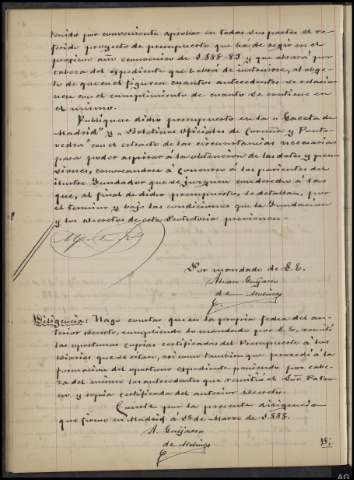 tenido por conveniente aprobar en todas sus partes el re-
ferido proyecto de presupuesto que ha de regir en el
proximo año economico de 1888-89 y que obrará por
cabeza del espediente que habrá de instruirse, al obje-
to de que en él figuren cuantos antecedentes se relacio-
nen con el cumplimiento de cuanto se contiene en
en el mismo.
Publiquese dicho presupuesto en la "Gaceta de
Madrid" y "Boletines Oficiales de Coruña y Ponte-
vedra" con el estracto de las circunstancias necesarias
para poder aspirar á la obtencion de las dotes y pen-
siones, convocandose á concurso á los parientes del
ilustre Fundador que se juzguen con derecho á las
que, al final de dicho presupuesto, se detallan, por
el termino y bajo las condiciones que la Fundacion
y los decretos de esta previenen.
Por mandado de S. E.
Guijarro
de Molina
Diligencia: Hago constar que en la propia fecha del an-
terior decreto, cumpliendo lo mandado por S. E., remití
las oportunas copias certificadas del Presupuesto á los
Diarios que se citan, asi como tambien que procedí á la
formacion del oportuno espediente poniendo por cabe-
za del mismo los antecedentes que remitió el Sr. Patro-
no y copia certificada del anterior decreto.
Conste por la presente diligencia
que firmo en Madrid á 1º de Marzo de 1.888.
Guijarro
de Molina